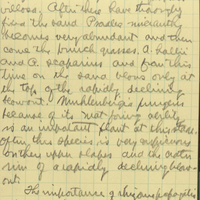 villosa. After these have thoroly
fixed the sand Psoralea micrantha
becomes very abundant and then
come the bunch grasses, A. hallii
and C. scoparius and from this
time on the sand blows only at
the top of the rapidly declining
blowout. Muhlenbergia pungens
because of its mat forming ability
is an important plant at this stage.
often this species is very conspicuous
on the upper slopes and the outer
rim of a rapidly declining blow-
out.
The importance of rhizome propagation